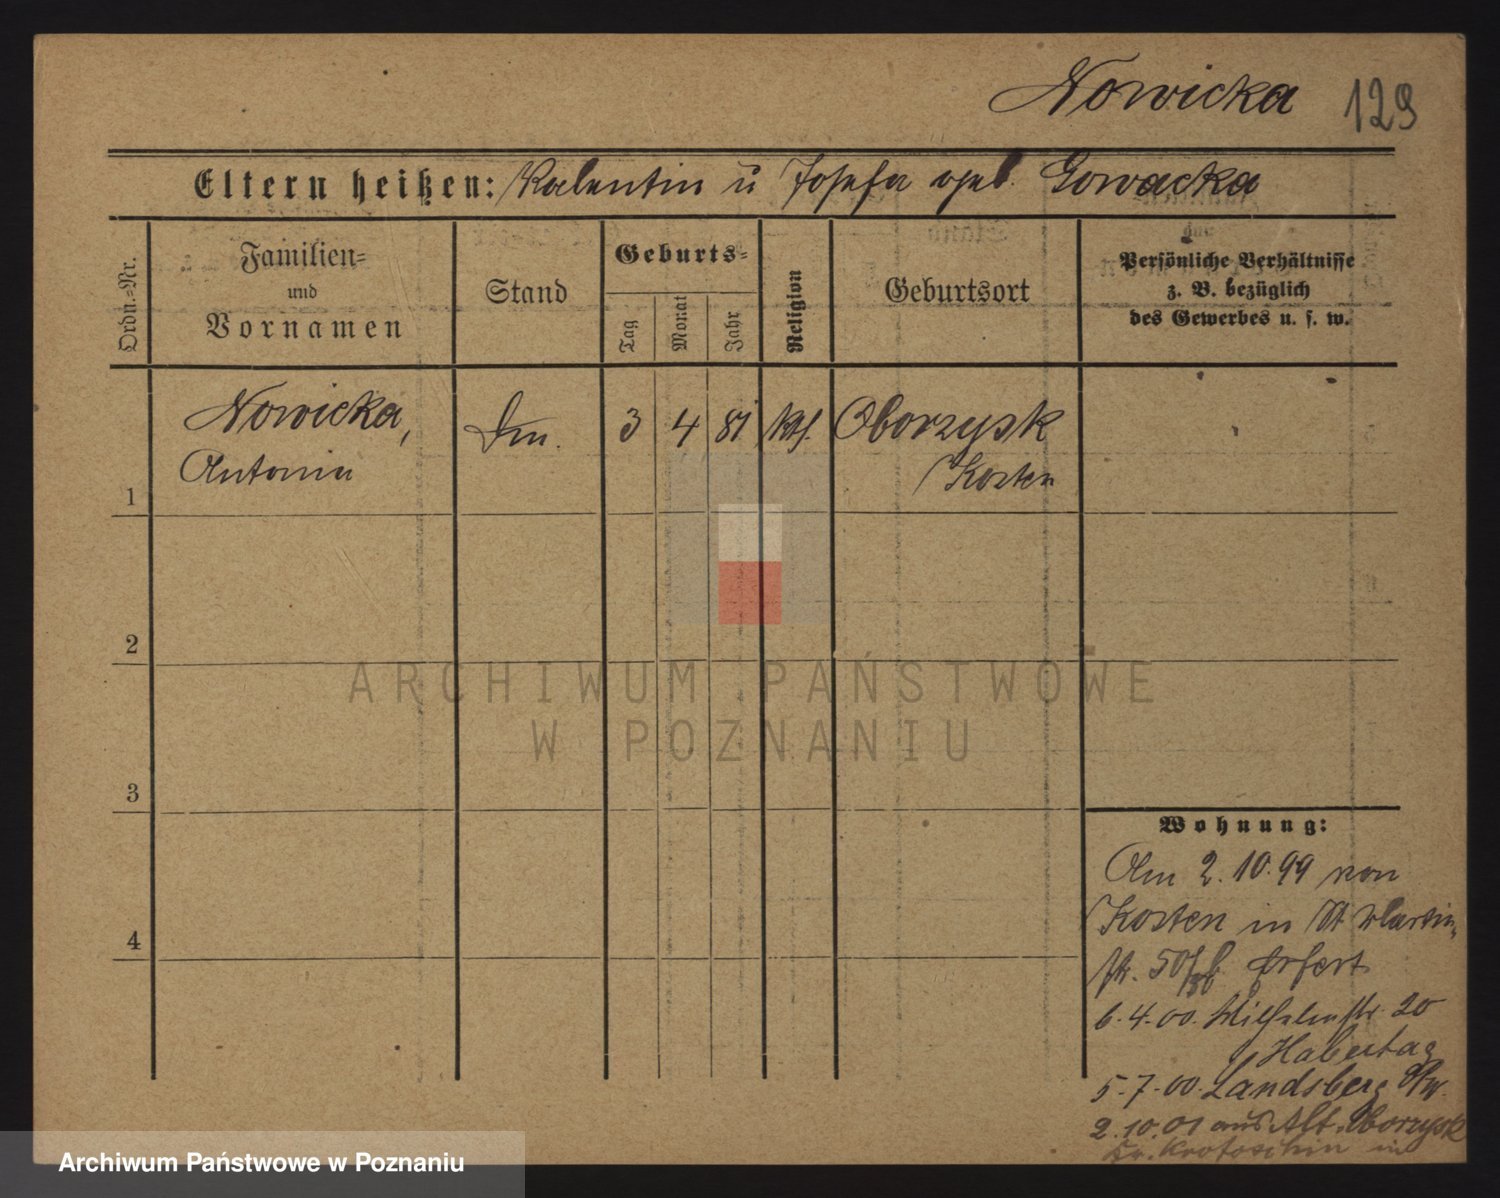 Nowicka 129
Eltern heißen: Valentin u Josefa geb. Gowacka
Ordn.-Nr.
Familien-
und
Vornamen
Stand
Geburts-
Tag
Monat
Jahr
Religion
Geburtsort
Persönliche Verhältnisse
z. B. bezüglich
des Gewerbes u. s. w.
1
Nowicka,
Antonia
Dm.
3
4
81
kth.
Oborzysk
Kosten
2
3
4
Wohnung:
Am 2.10.99 von
Kosten in St Martin-
str. 50/ b Erfert
6.4.00. Wilhelmstr. 20
Habertag
5.7.00. Landsberg a/w.
2.10.01 aus Alt. Oborzysk
Kr. Krotoschin in
ARCHIWUM PAŃSTWOWE
W POZNANIU
Archiwum Państwowe w Poznaniu